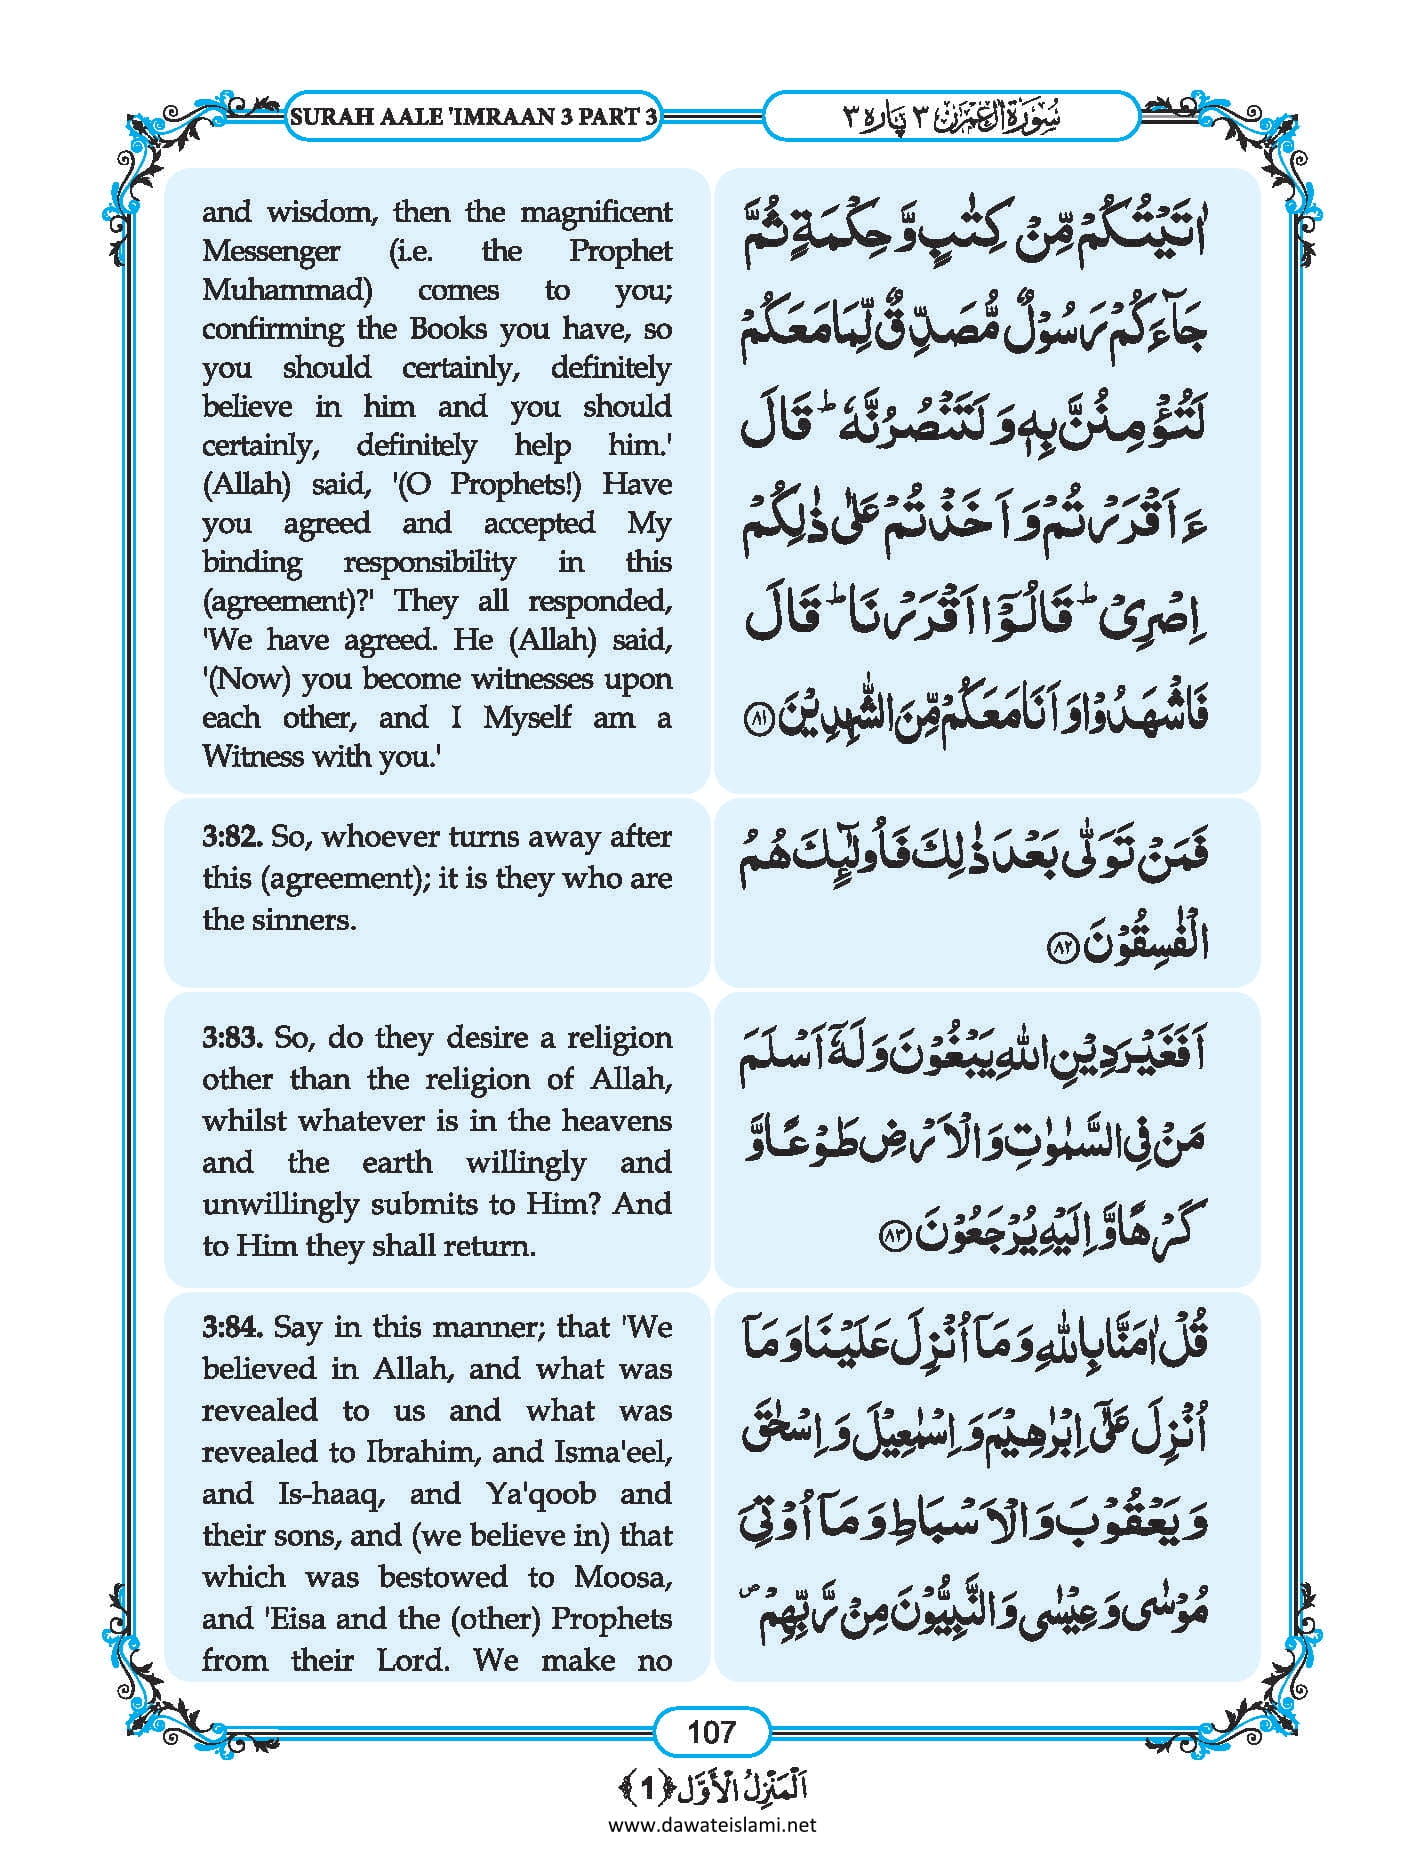 SURAH AALE 'IMRAAN 3 PART 3
سُوْرَةُ اٰلِ عِمْرٰن ٣ پَارہ ٣
and wisdom, then the magnificent
Messenger (i.e. the Prophet
Muhammad) comes to you;
confirming the Books you have, so
you should certainly, definitely
believe in him and you should
certainly, definitely help him.'
(Allah) said, '(O Prophets!) Have
you agreed and accepted My
binding responsibility in this
(agreement)?' They all responded,
'We have agreed. He (Allah) said,
'(Now) you become witnesses upon
each other, and I Myself am a
Witness with you.'
اٰتَيْتُكُمْ مِّنْ كِتٰبٍ وَّ حِكْمَةٍ ثُمَّ
جَآءَكُمْ رَسُوْلٌ مُّصَدِّقٌ لِّمَا مَعَكُمْ
لَتُؤْمِنُنَّ بِهٖ وَ لَتَنْصُرُنَّهٗ ؕ قَالَ
ءَاَقْرَرْتُمْ وَ اَخَذْتُمْ عَلٰى ذٰلِكُمْ
اِصْرِيْ ؕ قَالُوْۤا اَقْرَرْنَا ؕ قَالَ
فَاشْهَدُوْا وَ اَنَا مَعَكُمْ مِّنَ الشّٰهِدِيْنَ ﴿٨١﴾
3:82. So, whoever turns away after
this (agreement); it is they who are
the sinners.
فَمَنْ تَوَلّٰى بَعْدَ ذٰلِكَ فَاُولٰٓئِكَ هُمُ
الْفٰسِقُوْنَ ﴿٨٢﴾
3:83. So, do they desire a religion
other than the religion of Allah,
whilst whatever is in the heavens
and the earth willingly and
unwillingly submits to Him? And
to Him they shall return.
اَفَغَيْرَ دِيْنِ اللّٰهِ يَبْغُوْنَ وَ لَهٗۤ اَسْلَمَ
مَنْ فِي السَّمٰوٰتِ وَ الْاَرْضِ طَوْعًا وَّ
كَرْهًا وَّ اِلَيْهِ يُرْجَعُوْنَ ﴿٨٣﴾
3:84. Say in this manner; that 'We
believed in Allah, and what was
revealed to us and what was
revealed to Ibrahim, and Isma'eel,
and Is-haaq, and Ya'qoob and
their sons, and (we believe in) that
which was bestowed to Moosa,
and 'Eisa and the (other) Prophets
from their Lord. We make no
قُلْ اٰمَنَّا بِاللّٰهِ وَ مَاۤ اُنْزِلَ عَلَيْنَا وَ مَاۤ
اُنْزِلَ عَلٰۤى اِبْرٰهِيْمَ وَ اِسْمٰعِيْلَ وَ اِسْحٰقَ
وَ يَعْقُوْبَ وَ الْاَسْبَاطِ وَ مَاۤ اُوْتِيَ
مُوْسٰى وَ عِيْسٰى وَ النَّبِيُّوْنَ مِنْ رَّبِّهِمْ ۪
107
اَلْمَنْزِلُ الْأَوَّل ﴿1﴾
www.dawateislami.net